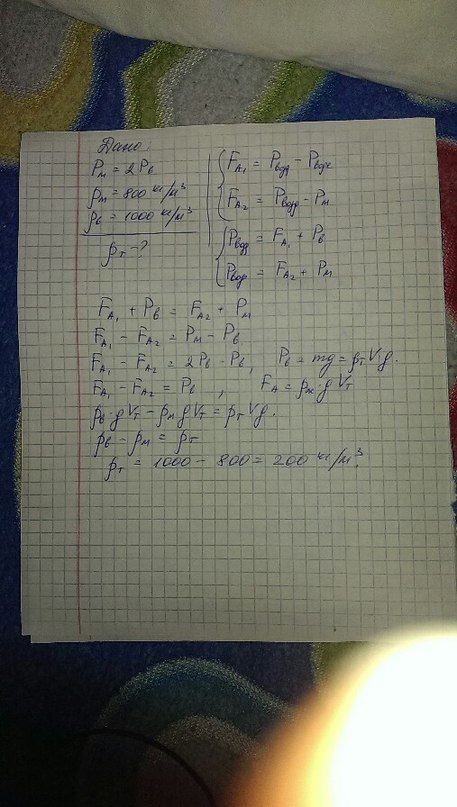 Дано
Pм = 2Pв
ρм = 800 кг/м³
ρв = 1000 кг/м³
ρт - ?
FA₁ = Pвозд - Pводе
FA₂ = Pвозд - Pм
Pвозд = FA₁ + Pв
Pвозд = FA₂ + Pм
FA₁ + Pв = FA₂ + Pм
FA₁ - FA₂ = Pм - Pв
FA₁ - FA₂ = 2Pв - Pв, Pв = mg = ρт Vg.
FA₁ - FA₂ = Pв , FA = ρж·g Vт
ρв·g Vт - ρм g Vт = ρт Vg.
ρв - ρм = ρт
ρт = 1000 - 800 = 200 кг/м³.